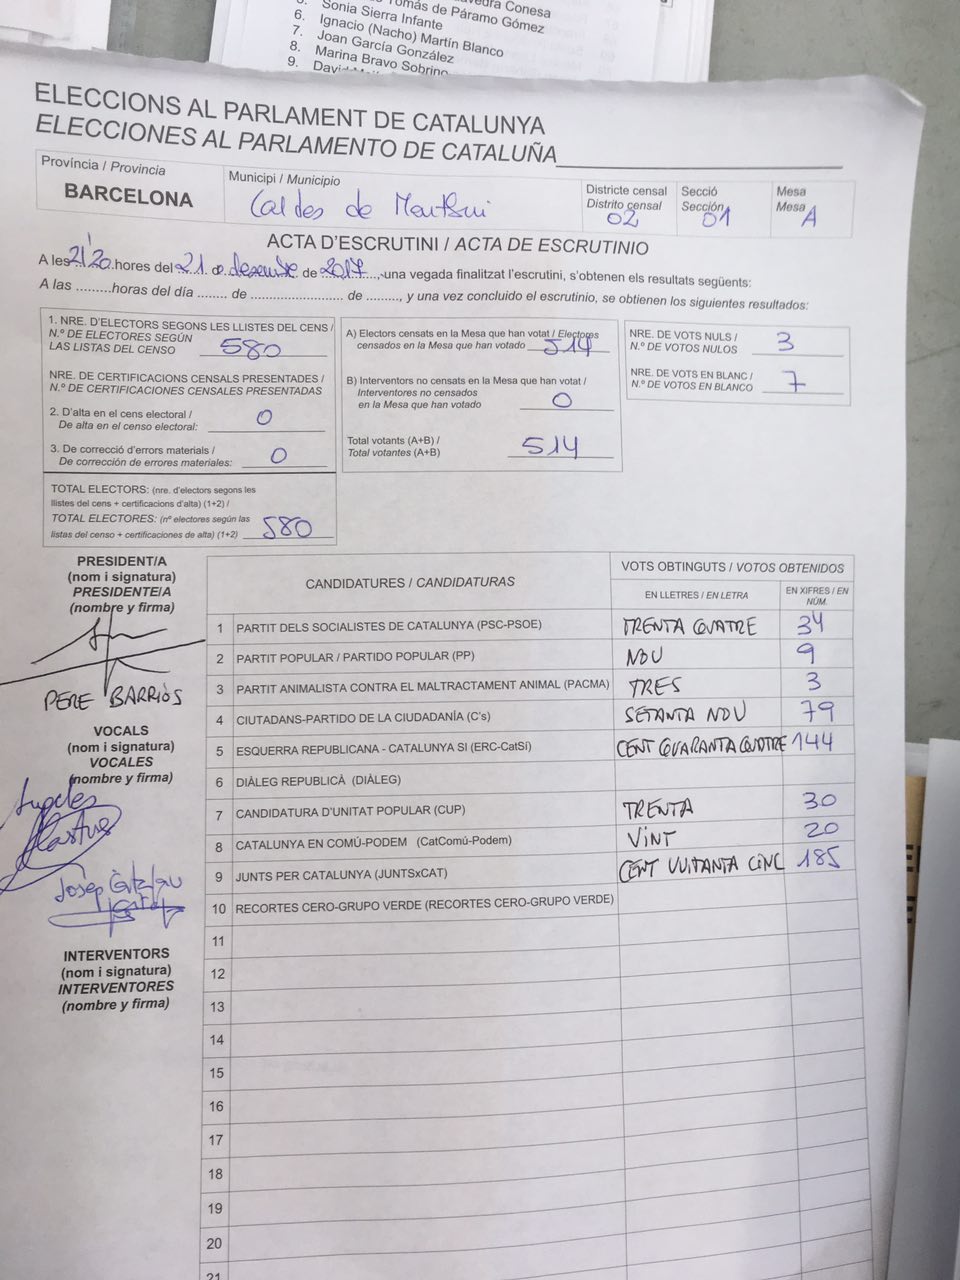 Conesa
Tomás de Páramo Gómez
6. Sonia Sierra Infante
7. Ignacio (Nacho) Martín Blanco
8. Joan García González
9. Marina Bravo Sobrino
ELECCIONS AL PARLAMENT DE CATALUNYA
ELECCIONES AL PARLAMENTO DE CATALUÑA
Província / Provincia
BARCELONA
Municipi / Municipio
Caldes de Montbui
Districte censal
Distrito censal
02
Secció
Sección
01
Mesa
Mesa
A
ACTA D'ESCRUTINI / ACTA DE ESCRUTINIO
A les 21'20 hores del 21 de desembre de 2017, una vegada finalitzat l'escrutini, s'obtenen els resultats següents:
A las .........horas del día ........ de ........................ de ........., y una vez concluido el escrutinio, se obtienen los siguientes resultados:
1. NRE. D'ELECTORS SEGONS LES LLISTES DEL CENS /
N.º DE ELECTORES SEGÚN
LAS LISTAS DEL CENSO 580
NRE. DE CERTIFICACIONS CENSALS PRESENTADES /
N.º DE CERTIFICACIONES CENSALES PRESENTADAS
2. D'alta en el cens electoral /
De alta en el censo electoral: 0
3. De correcció d'errors materials /
De corrección de errores materiales: 0
TOTAL ELECTORS: (nre. d'electors segons les
llistes del cens + certificacions d'alta) (1+2) /
TOTAL ELECTORES: (nº electores según las
listas del censo + certificaciones de alta) (1+2) 580
A) Electors censats en la Mesa que han votat / Electores
censados en la Mesa que han votado 514
B) Interventors no censats en la Mesa que han votat /
Interventores no censados
en la Mesa que han votado 0
Total votants (A+B) /
Total votantes (A+B) 514
NRE. DE VOTS NULS /
N.º DE VOTOS NULOS 3
NRE. DE VOTS EN BLANC /
N.º DE VOTOS EN BLANCO 7
PRESIDENT/A
(nom i signatura)
PRESIDENTE/A
(nombre y firma)
PERE BARRIOS
VOCALS
(nom i signatura)
VOCALES
(nombre y firma)
Josep
INTERVENTORS
(nom i signatura)
INTERVENTORES
(nombre y firma)
CANDIDATURES / CANDIDATURAS
VOTS OBTINGUTS / VOTOS OBTENIDOS
EN LLETRES / EN LETRA
EN XIFRES / EN NÚM.
1 PARTIT DELS SOCIALISTES DE CATALUNYA (PSC-PSOE) TRENTA QUATRE 34
2 PARTIT POPULAR / PARTIDO POPULAR (PP) NOU 9
3 PARTIT ANIMALISTA CONTRA EL MALTRACTAMENT ANIMAL (PACMA) TRES 3
4 CIUTADANS-PARTIDO DE LA CIUDADANÍA (C's) SETANTA NOU 79
5 ESQUERRA REPUBLICANA - CATALUNYA SI (ERC-CatSí) CENT QUARANTA QUATRE 144
6 DIÀLEG REPUBLICÀ (DIÀLEG)
7 CANDIDATURA D'UNITAT POPULAR (CUP) TRENTA 30
8 CATALUNYA EN COMÚ-PODEM (CatComú-Podem) VINT 20
9 JUNTS PER CATALUNYA (JUNTSxCAT) CENT VUITANTA CINC 185
10 RECORTES CERO-GRUPO VERDE (RECORTES CERO-GRUPO VERDE)
11
12
13
14
15
16
17
18
19
20
21